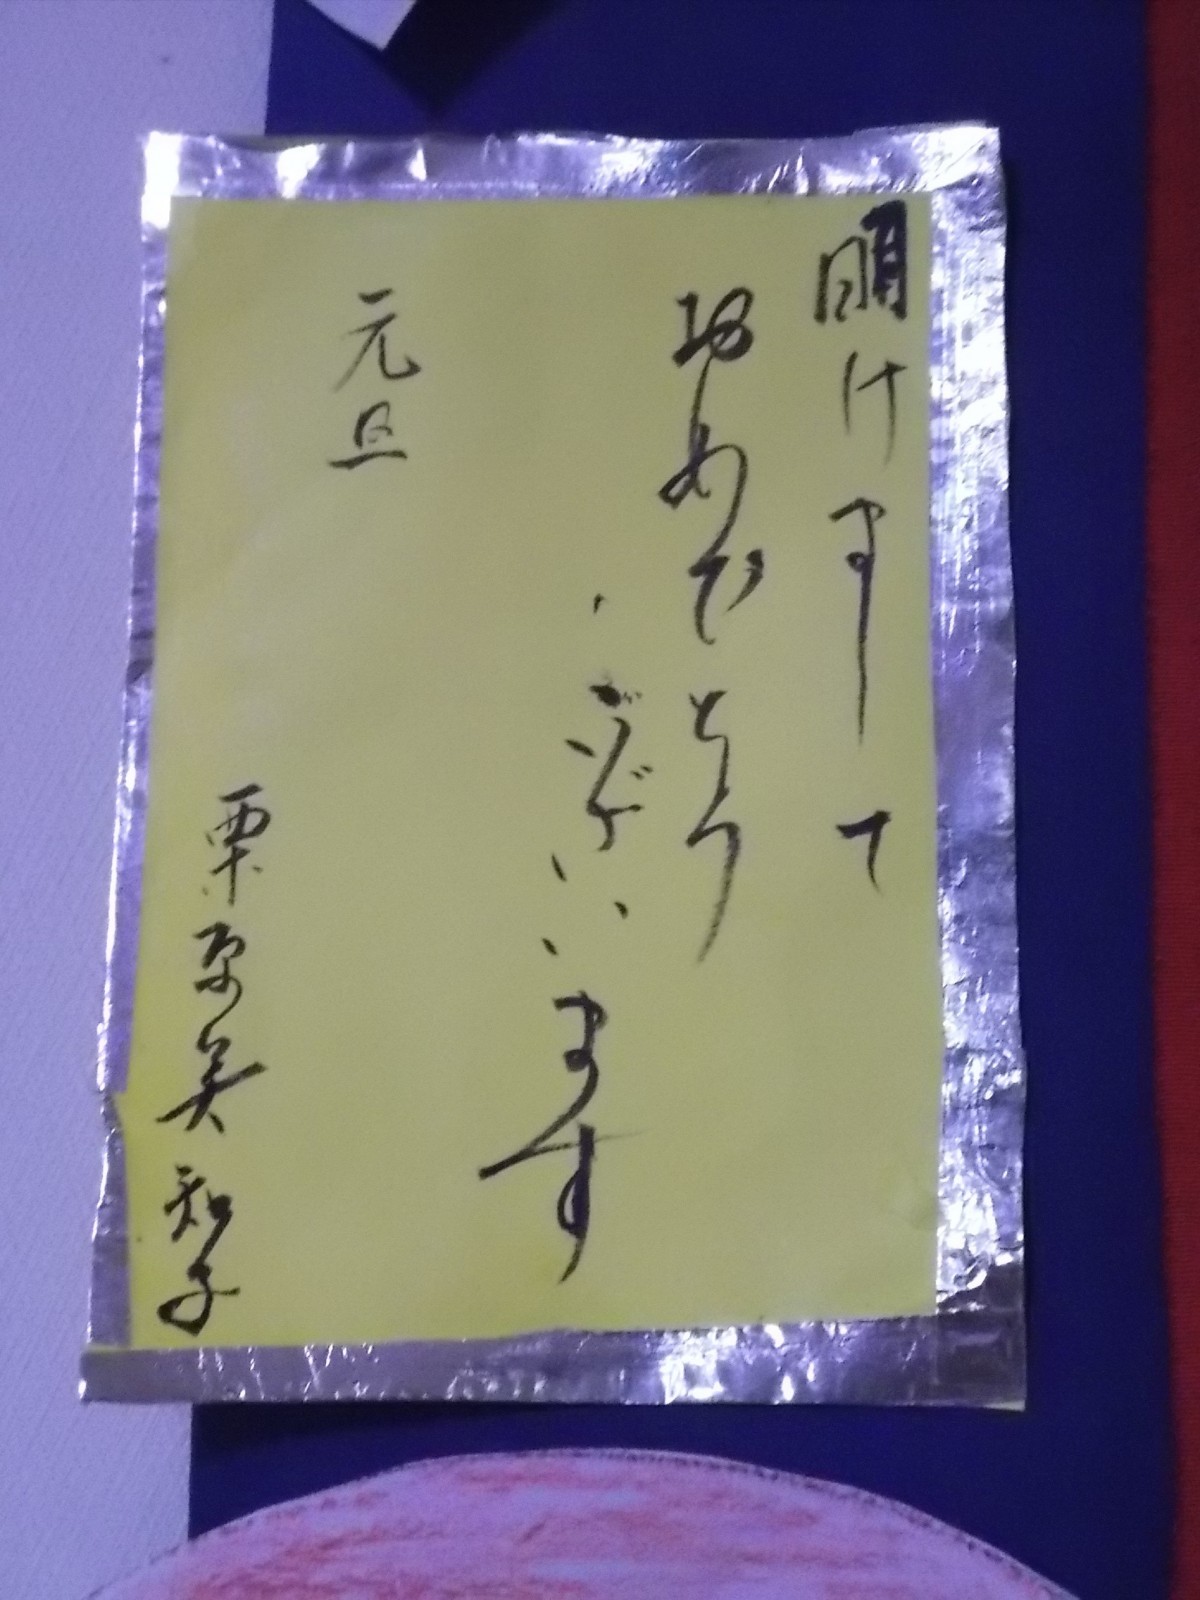 明けまして
おめでとう
ございます
元旦
栗原美知子